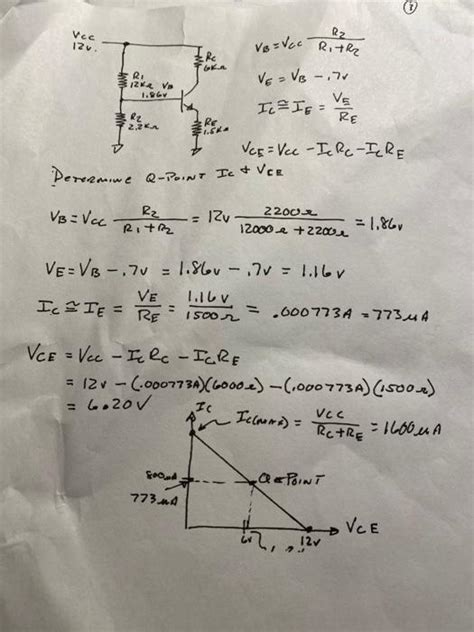 ①
VCC
12V.
R1
12KΩ
VB
1.86V
R2
2.2KΩ
RC
6KΩ
RE
1.5KΩ
VB = VCC R2 / R1 + R2
VE = VB - .7V
IC ≅ IE = VE / RE
VCE = VCC - ICRC - ICRE
DETERMINE Q-POINT IC & VCE
VB = VCC R2 / R1 + R2 = 12V 2200Ω / 12000Ω + 2200Ω = 1.86V
VE = VB - .7V = 1.86V - .7V = 1.16V
IC ≅ IE = VE / RE = 1.16V / 1500Ω = .000773A = 773μA
VCE = VCC - ICRC - ICRE
= 12V - (.000773A)(6000Ω) - (.000773A)(1500Ω)
= 6.20V
IC
IC(MAX) = VCC / RC + RE = 1600μA
800μA
773μA
Q-POINT
6V
12V
VCE